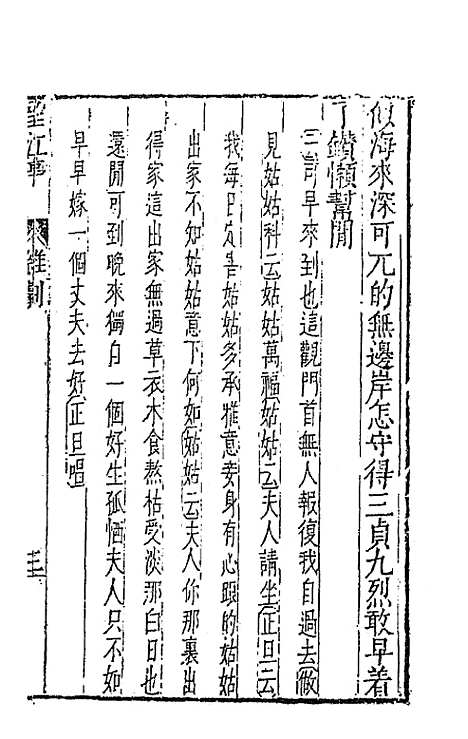 似海來深可兀的無邊岸怎守得三貞九烈敢早着
了鑽懶幫閒
云可早來到也這觀門首無人報復我自過去做
見姑姑科云姑姑萬福姑姑云夫人請坐正旦云
我每日定害姑姑多承雅意妾身有心跟的姑姑
出家不知姑姑意下何如姑姑云夫人你那裏出
得家這出家無過草衣木食熬枯受淡那白日也
還閒可到晚來獨自一個好生孤恓夫人只不如
早早嫁一個丈夫去好正旦唱
望江亭
雜劇
三